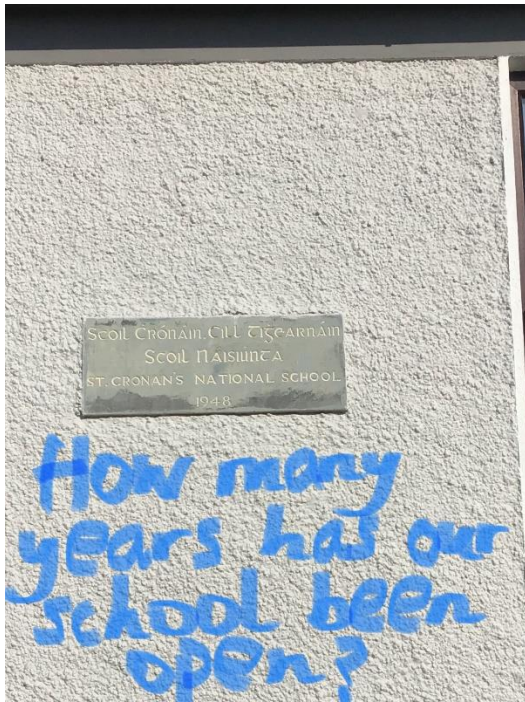 Scoil Crónáin, Cill Tigearnáin
Scoil Náisiúnta
ST. CRONAN'S NATIONAL SCHOOL
1948
How many
years has our
school been
open?